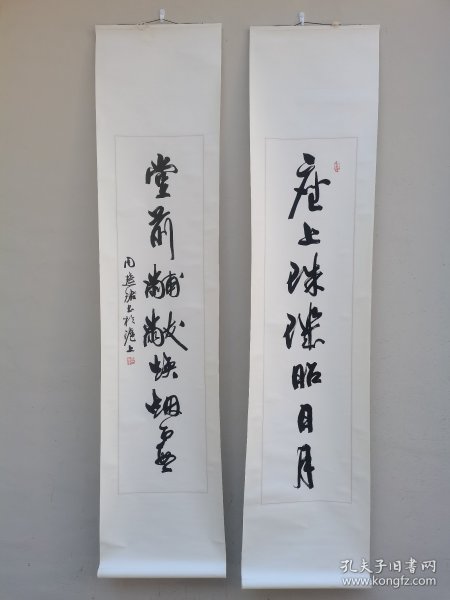 座上珠璣昭日月
堂前黼黻焕烟霞
周慧珺书於滬上
孔夫子旧书网
www.kongfz.com